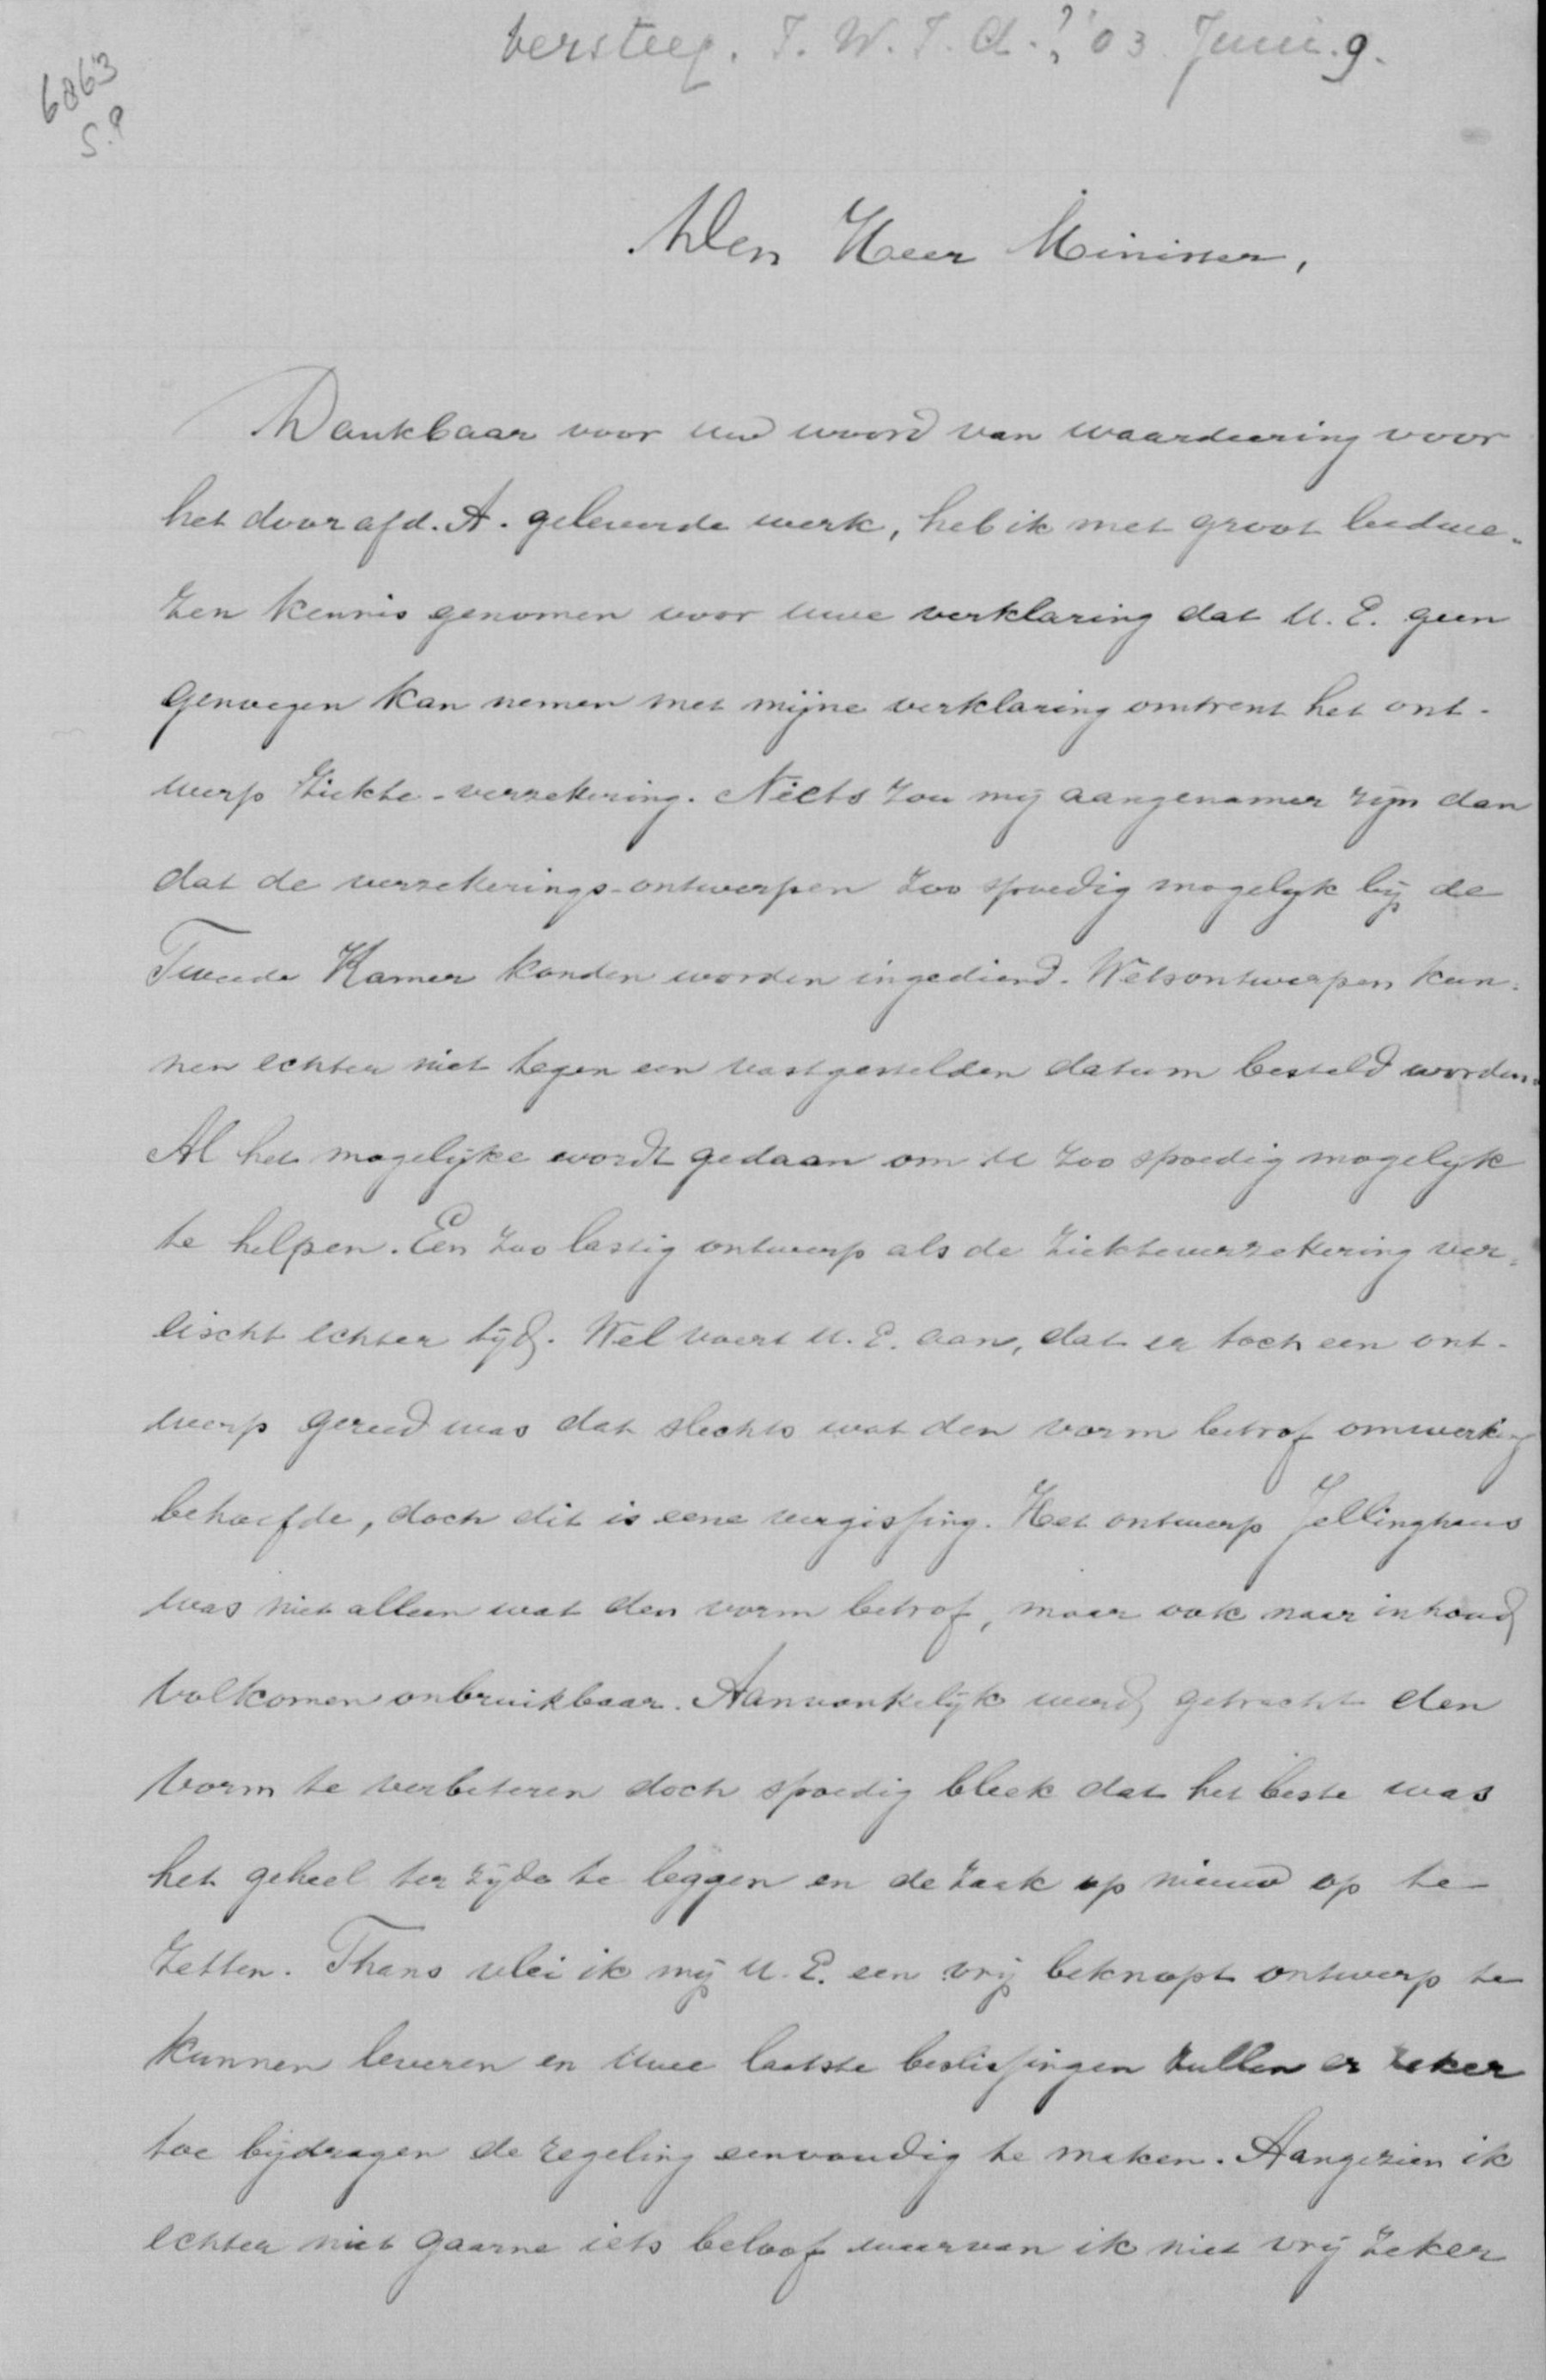 Versteeg. J. W. J. A.? '03 Juni. 9.
6863
S.P
Den Heer Minister,
Dankbaar voor uw woord van waardeering voor
het door afd. A. geleverde werk, heb ik met groot leedwe-
zen kennis genomen voor uwe verklaring dat U. E. geen
genoegen kan nemen met mijne verklaring omtrent het ont-
werp Ziekte-verzekering. Niets zou mij aangenamer zijn dan
dat de verzekerings-ontwerpen zoo spoedig mogelijk bij de
Tweede Kamer konden worden ingediend. Wetsontwerpen kun-
nen echter niet tegen een vastgestelden datum besteld worden.
Al het mogelijke wordt gedaan om U zoo spoedig mogelijk
te helpen. Een zoo lastig ontwerp als de Ziekteverzekering ver-
eischt echter tijd. Wel voert U. E. aan, dat er toch een ont-
werp gereed was dat slechts wat den vorm betrof omwerking
behoefde, doch dit is eene vergissing. Het ontwerp Jellinghaus
was niet alleen wat den vorm betrof, maar ook naar inhoud
volkomen onbruikbaar. Aanvankelijk werd getracht den
vorm te verbeteren doch spoedig bleek dat het beste was
het geheel ter zijde te leggen en de zaak op nieuw op te
zetten. Thans vlei ik mij U. E. een vrij beknopt ontwerp te
kunnen leveren en Uwe laatste beslissingen zullen er zeker
toe bijdragen de regeling eenvoudig te maken. Aangezien ik
echter niet gaarne iets beloof waarvan ik niet vrij zeker